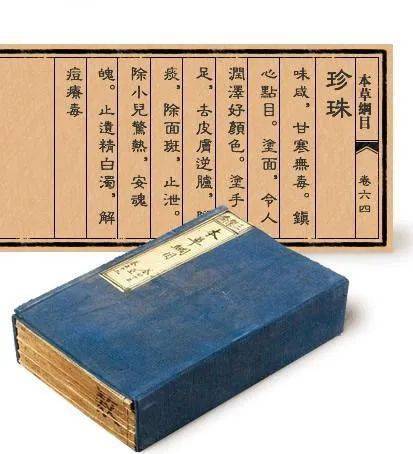 本草綱目
卷六四
珍珠
味咸，甘寒無毒。鎮
心點目。塗面，令人
潤澤好顏色。塗手
足，去皮膚逆臚，
痰，除面斑，止泄。
除小兒驚熱，安魂
魄。止遺精白濁，解
痘療毒
本草綱目